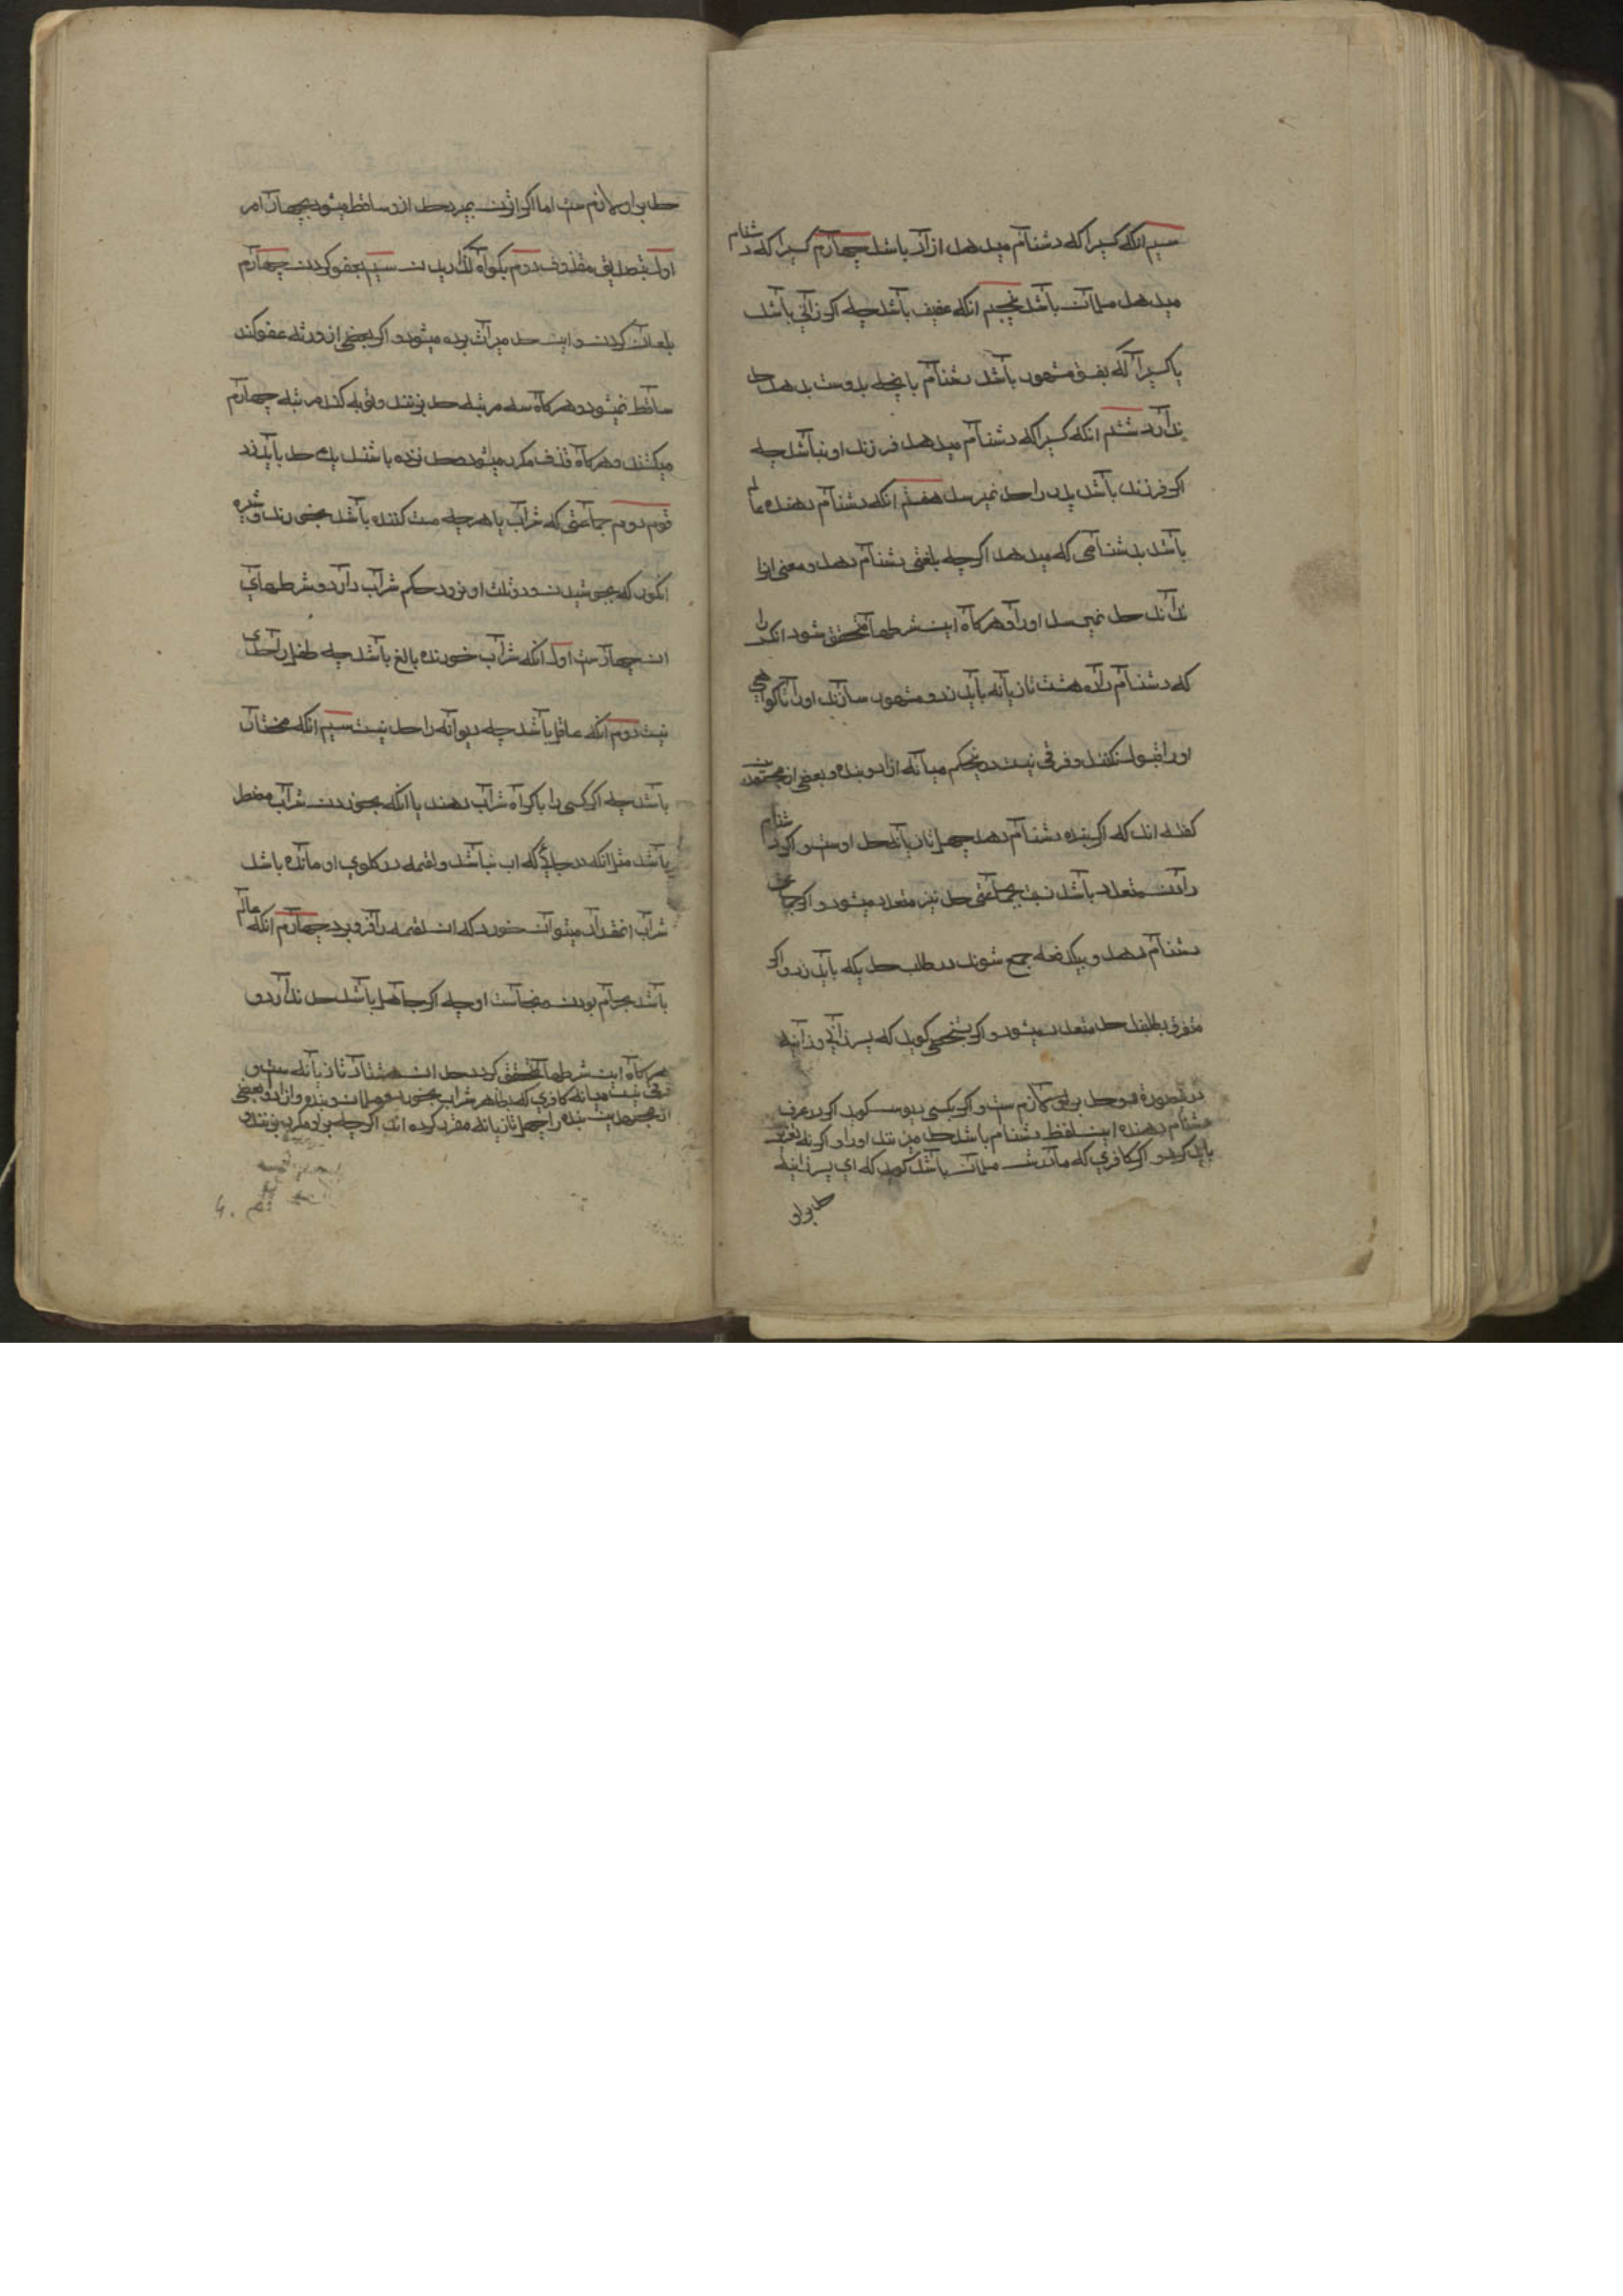 سیم انکه کسیرا که دشنام میدهد ازاد باشد چهارم کسیرا که دشنام
میدهد مسلمان باشد پنجم انکه عفیف باشد چه اکر زانی باشد
یا کسیرا که بفسق مشهور باشد دشنام یا نچه بدوست بدهد حد
ندارد ششم انکه کسیرا که دشنام میدهد فرزند او نباشد چه
اکر فرزند باشد پدر را حد نمیرسد هفتم انکه دشنام دهنده عالم
باشد بدشنامی که میدهد اکرچه بلغتی دشنام دهد و معنی انرا
نداند حد نمیرسد اورا و هرکاه این شرطها متحقق شود انکس را
که دشنام داده هشت تازیانه باید زد و مشهور سازند اورا تا کواهی
اورا قبول نکنند و فرقی نیست درینحکم میانه ازاد و بنده و بعضی از مجتهدین
کفته اند که اکر بنده دشنام دهد چهل تازیانه حد اوست و اکر دشنام
دادن متعدد باشد نسبت بجماعتی حد نیز متعدد میشود و اکر جماعتی
دشنام دهد و بیکدفعه جمع شوند در طلب حد یکه باید زد و اکر
متفرق بطلبند حد متعدد میشود و اکر بشخصی کوید که پسر زانی و زانیه
درینصورة دو حد برو لازمست و اکر بکسی دیوس کوید اکر در عرف
دشنام دهنده این لفظ دشنام باشد حد میزنند اورا و اکر نه تعزیر
باید کرد و اکر کافری که مادرش مسلمان باشد کوید که ای پسر زانیه
حد برو
حد برو لازمست اما اکر ازن بمیرد حد ازو ساقط میشود بچهار امر
اول بتصدیق مقذوف دوم بکواه کذرانیدن سیم بعفو کردن چهارم
بلعان کردن و این حد میراث برده میشود و اکر بعضی از ورثه عفو کند
ساقط نمیشود و هرکاه سه مرتبه حد بزنند و توبه کند مرتبه چهارم
میکشند و هرکاه قذف مکرر میشود و حد نزده باشند یک حد باید زد
قسم دویم جماعتی که شراب یا هرچه مست کننده باشد بخورند و شیره
انکور که بجوشیدن و دو ثلث او نرود حکم شراب دارد و شرطهای
ان چهارست اول انکه شراب خورنده بالغ باشد چه طفل را حدی
نیست دوم انکه عاقل باشد چه دیوانه را حد نیست سیم انکه مختار
باشد چه اکر کسی را باکراه شراب دهند یا انکه بخوردن شراب مضطر
باشد مثل انکه در جائی که اب نباشد و لقمه در کلوی او مانده باشد
شراب انمقدار میتوان خورد که ان لقمه را فرو برد چهارم انکه عالم
باشد بحرام بودن و نجاست او چه اکر جاهل باشد حد ندارد و
هرکاه این شرطها متحقق کردد حد ان هشتاد تازیانه ست و
فرقی نیست میانه کافری که بظاهر شراب بخورد و مسلمان و بنده و ازاد و بعضی
از مجتهدین بنده را چهل تازیانه مقرر کرده اند اکرچه برو مکرر بزنند و